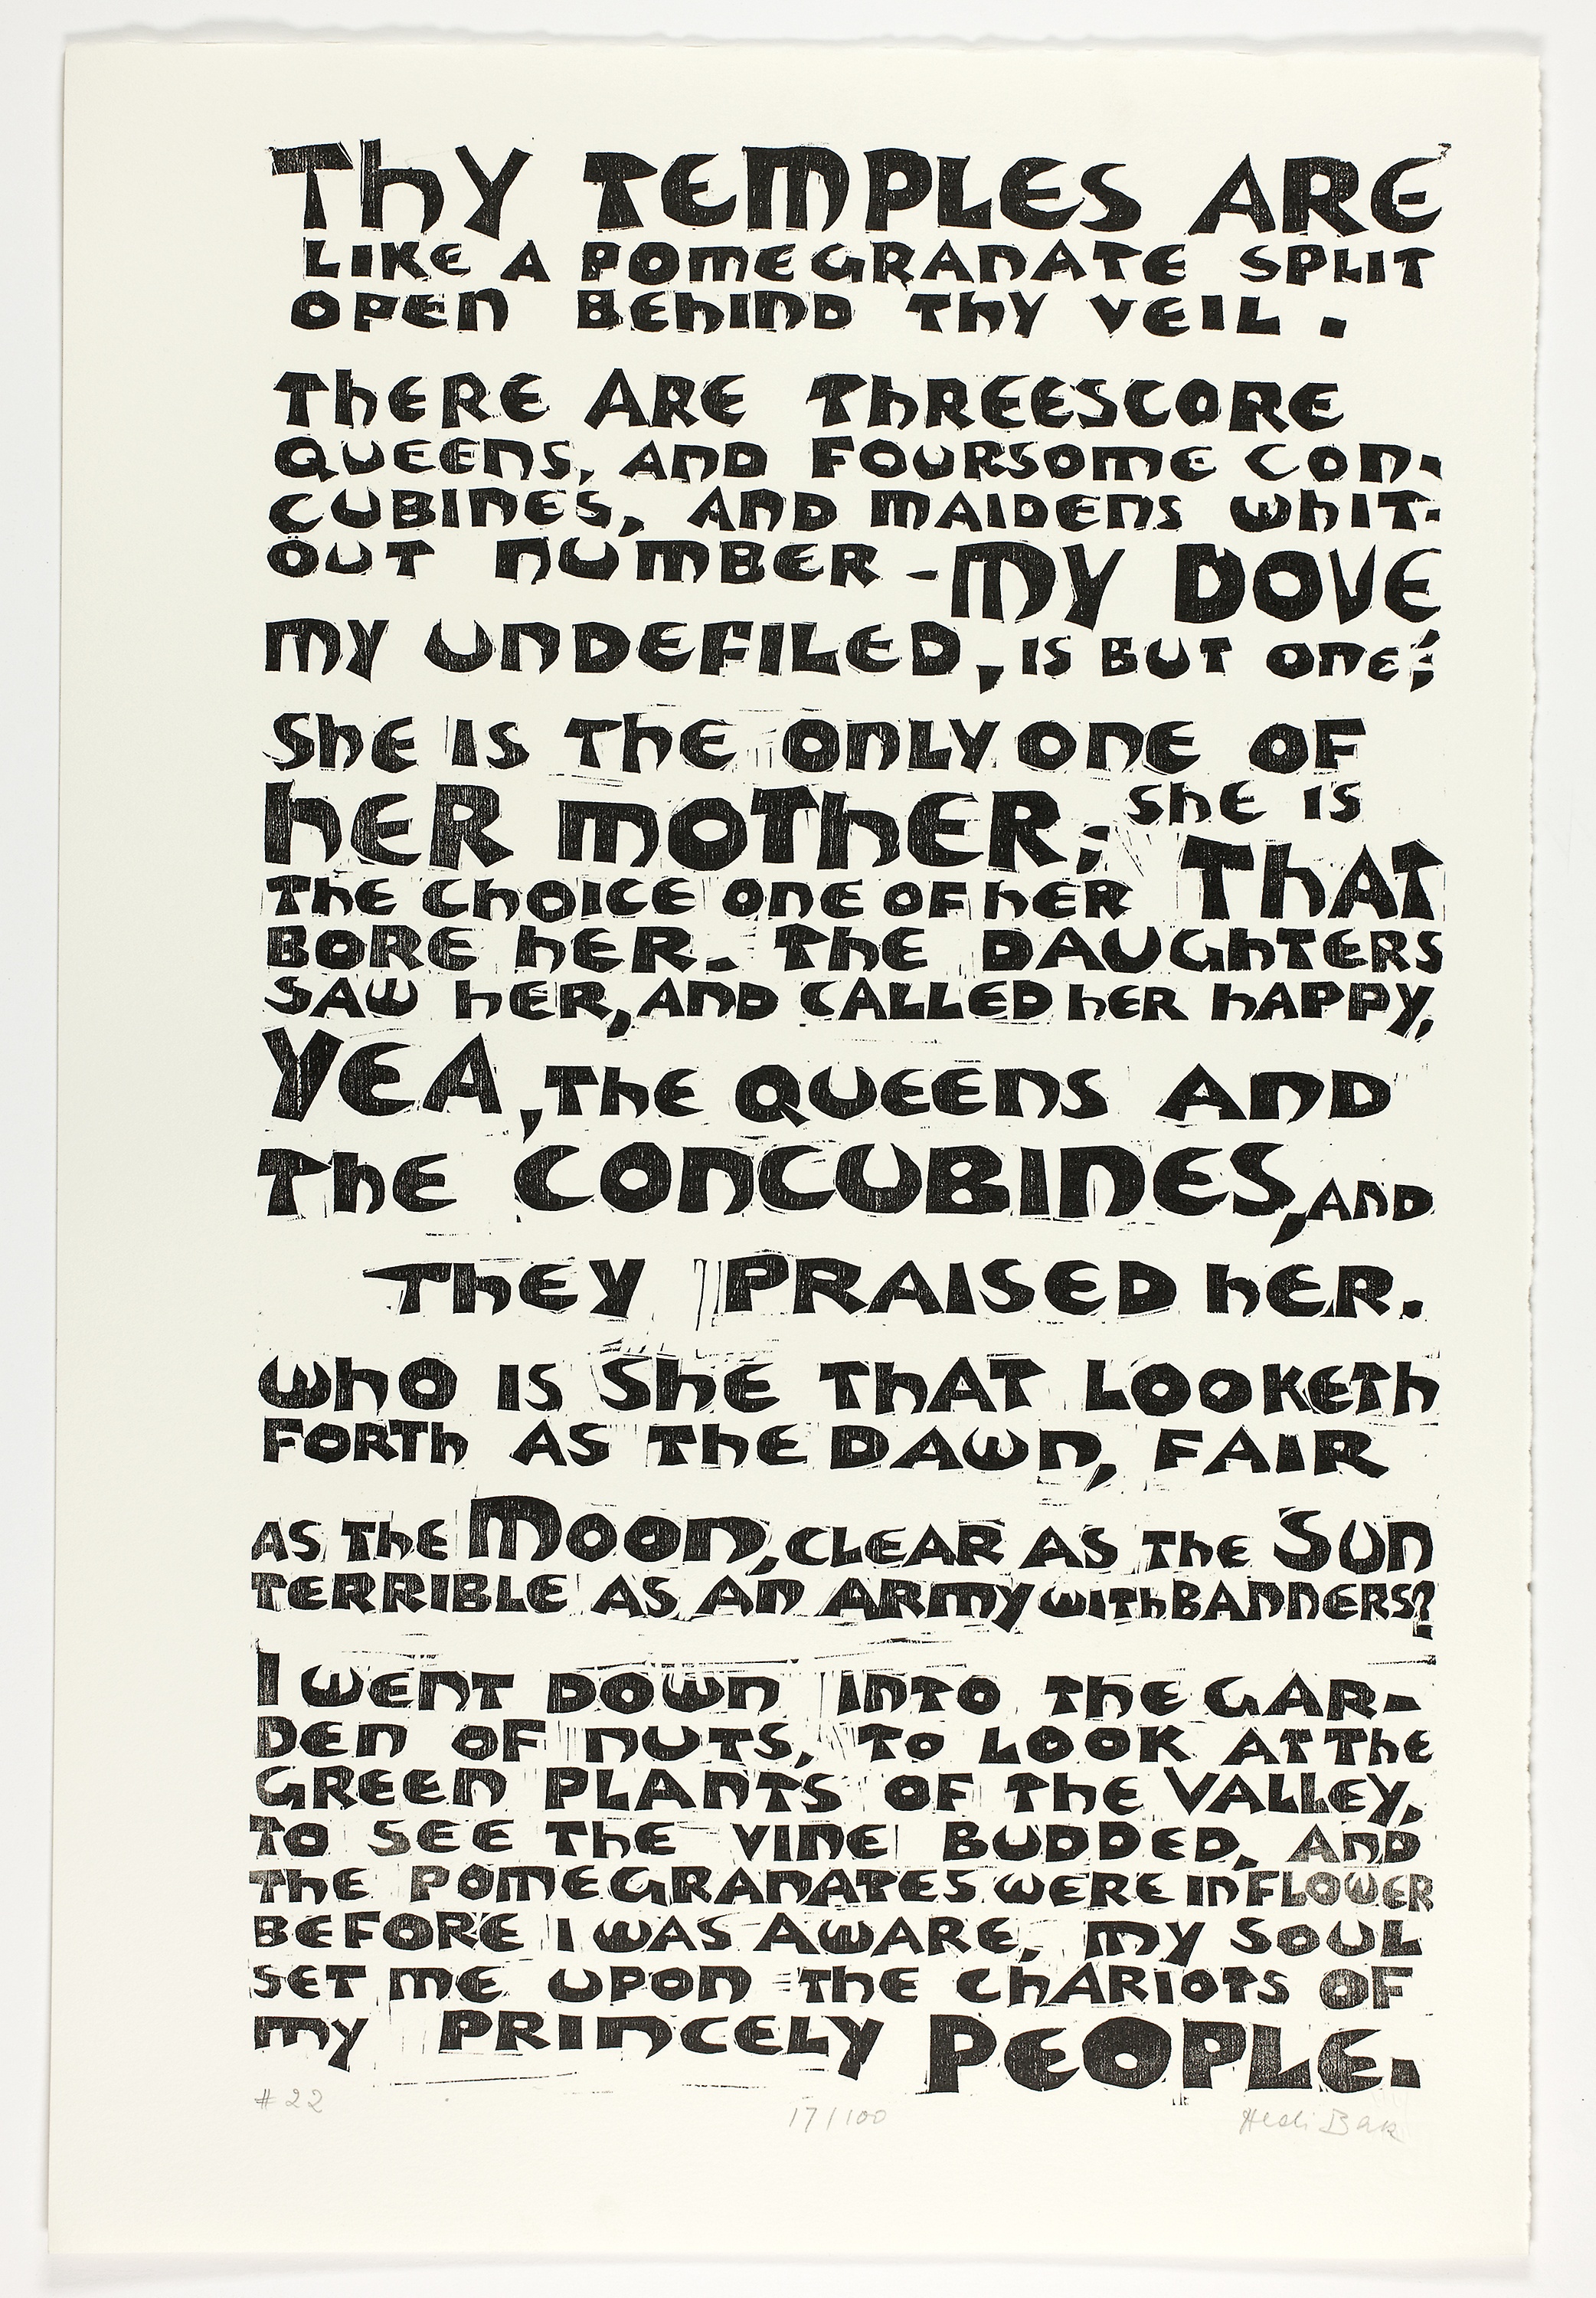 Thy TEMPLES ARE
LIKE A POMEGRANATE SPLIT
OPEN BEHIND THY VEIL .
THERE ARE THREESCORE
QUEENS, AND FOURSOME CON-
CUBINES, AND MAIDENS WHIT-
OUT NUMBER - MY DOVE
MY UNDEFILED, IS BUT ONE;
SHE IS THE ONLY ONE OF
HER MOTHER; SHE IS
THE CHOICE ONE OF HER THAT
BORE HER. THE DAUGHTERS
SAW HER, AND CALLED HER HAPPY,
YEA, THE QUEENS AND
THE CONCUBINES, AND
THEY PRAISED HER.
WHO IS SHE THAT LOOKETH
FORTH AS THE DAWN, FAIR
AS THE MOON, CLEAR AS THE SUN
TERRIBLE AS AN ARMY WITH BANNERS?
I WENT DOWN INTO THE GAR-
DEN OF NUTS, TO LOOK AT THE
GREEN PLANTS OF THE VALLEY,
TO SEE THE VINE BUDDED, AND
THE POMEGRANATES WERE IN FLOWER
BEFORE I WAS AWARE, MY SOUL
SET ME UPON THE CHARIOTS OF
MY PRINCELY PEOPLE.
# 22 17/100 Heidi Bak